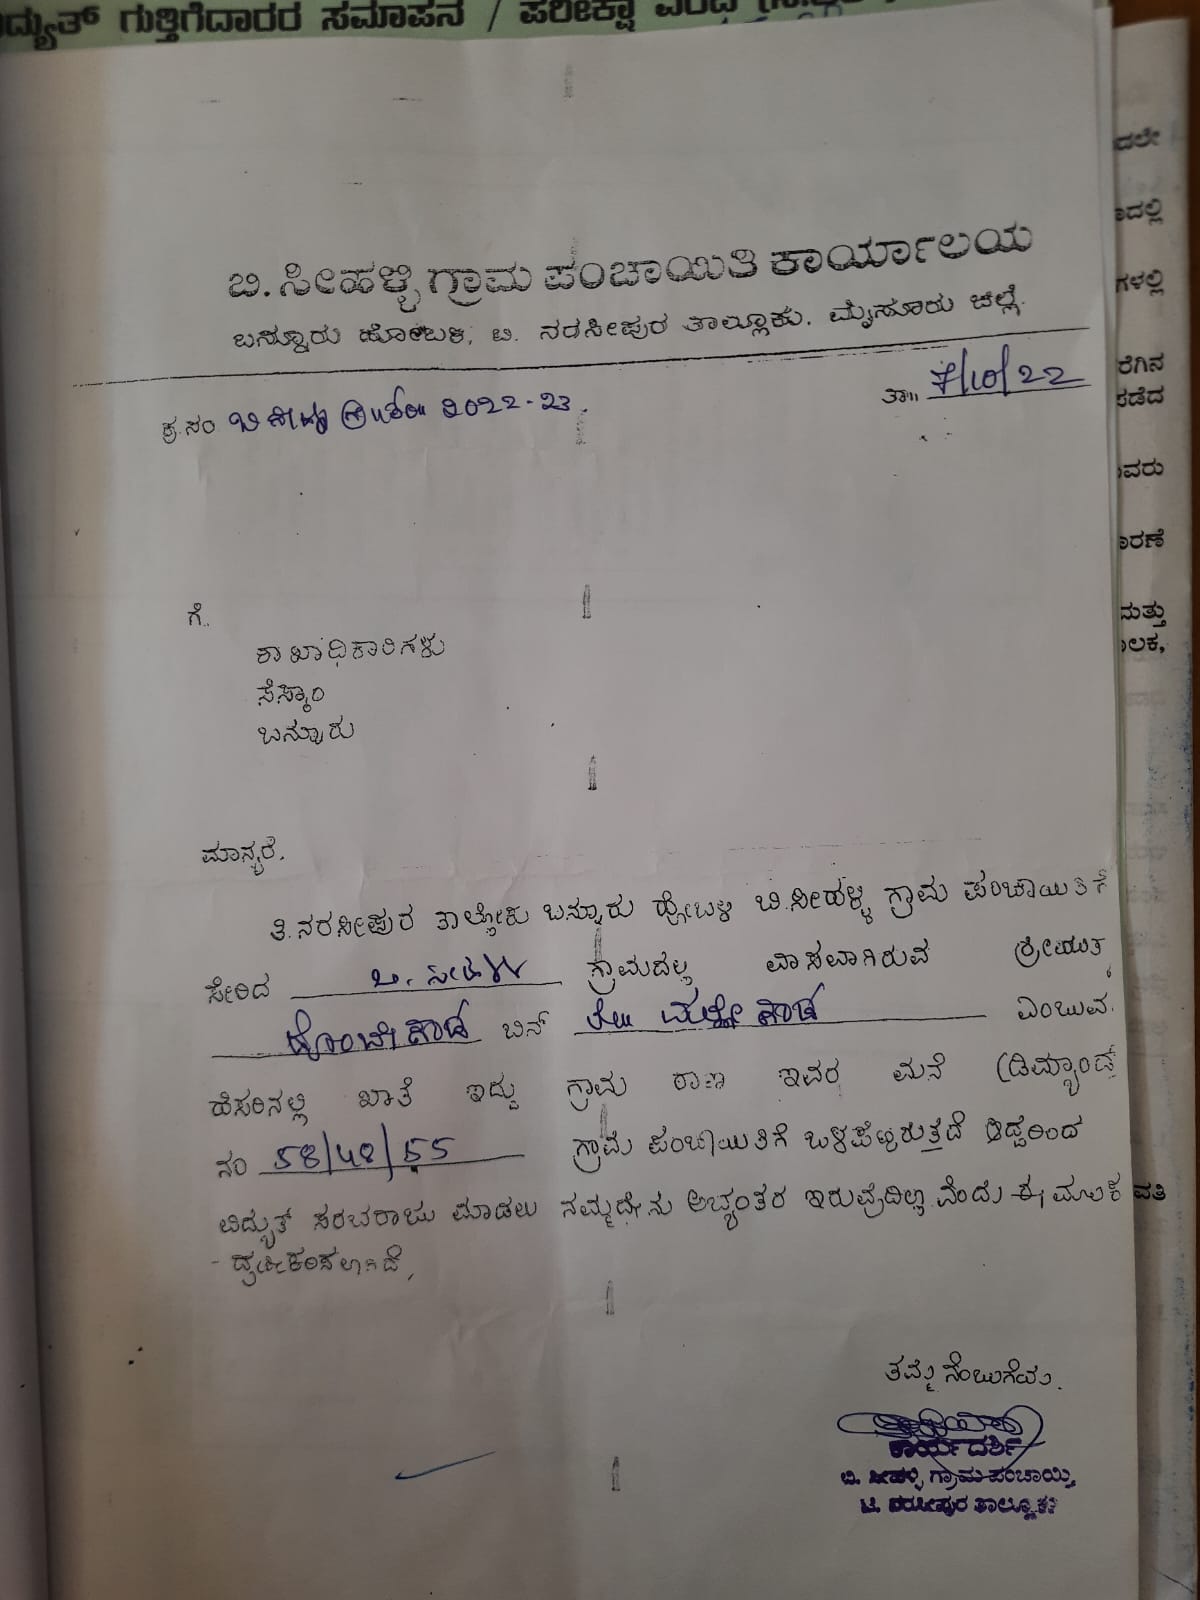 ದ್ಯುತ್ ಗುತ್ತಿಗೆದಾರರ ಸಮಾಪನ / ಪರೀಕ್ಷಾ ವರದಿ
ಬಿ. ಸೀಹಳ್ಳಿ ಗ್ರಾಮ ಪಂಚಾಯಿತಿ ಕಾರ್ಯಾಲಯ
ಬನ್ನೂರು ಹೋಬಳಿ, ಟಿ. ನರಸೀಪುರ ತಾಲ್ಲೂಕು. ಮೈಸೂರು ಜಿಲ್ಲೆ.
ಕ್ರ.ಸಂ 2022-23.
ತಾ॥ 7/10/22
ಗೆ.
ಶಾಖಾಧಿಕಾರಿಗಳು
ಸೆಸ್ಕಾಂ
ಬನ್ನೂರು
ಮಾನ್ಯರೆ,
ತಿ.ನರಸೀಪುರ ತಾಲ್ಲೋಕು ಬನ್ನೂರು ಹೋಬಳಿ ಬಿ.ಸೀಹಳ್ಳಿ ಗ್ರಾಮ ಪಂಚಾಯಿತಿಗೆ
ಸೇರಿದ ಬಿ. ಸೀಹಳ್ಳಿ ಗ್ರಾಮದಲ್ಲಿ ವಾಸವಾಗಿರುವ ಶ್ರೀಯುತ
ದೊಂಬೇಗೌಡ ಬಿನ್ ಲೇ॥ ಮಲ್ಲೇಗೌಡ ಎಂಬುವ.
ಹೆಸರಿನಲ್ಲಿ ಖಾತೆ ಇದ್ದು ಗ್ರಾಮ ಠಾಣ ಇವರ ಮನೆ (ಡಿಮ್ಯಾಂಡ್
ನಂ 58/48/55 ಗ್ರಾಮ ಪಂಚಾಯಿತಿಗೆ ಒಳಪಟ್ಟಿರುತ್ತದೆ ಆದ್ದರಿಂದ
ವಿದ್ಯುತ್ ಸರಬರಾಜು ಮಾಡಲು ನಮ್ಮದೇನು ಅಭ್ಯಂತರ ಇರುವುದಿಲ್ಲಾ ವೆಂದು ಈ ಮೂಲಕ
ದೃಢೀಕರಿಸಲಾಗಿದೆ,
ತಮ್ಮ ನಂಬುಗೆಯ.
ಕಾರ್ಯದರ್ಶಿ
ಬಿ. ಸೀಹಳ್ಳಿ ಗ್ರಾಮ ಪಂಚಾಯ್ತಿ,
ಟಿ. ನರಸೀಪುರ ತಾಲ್ಲೂಕು